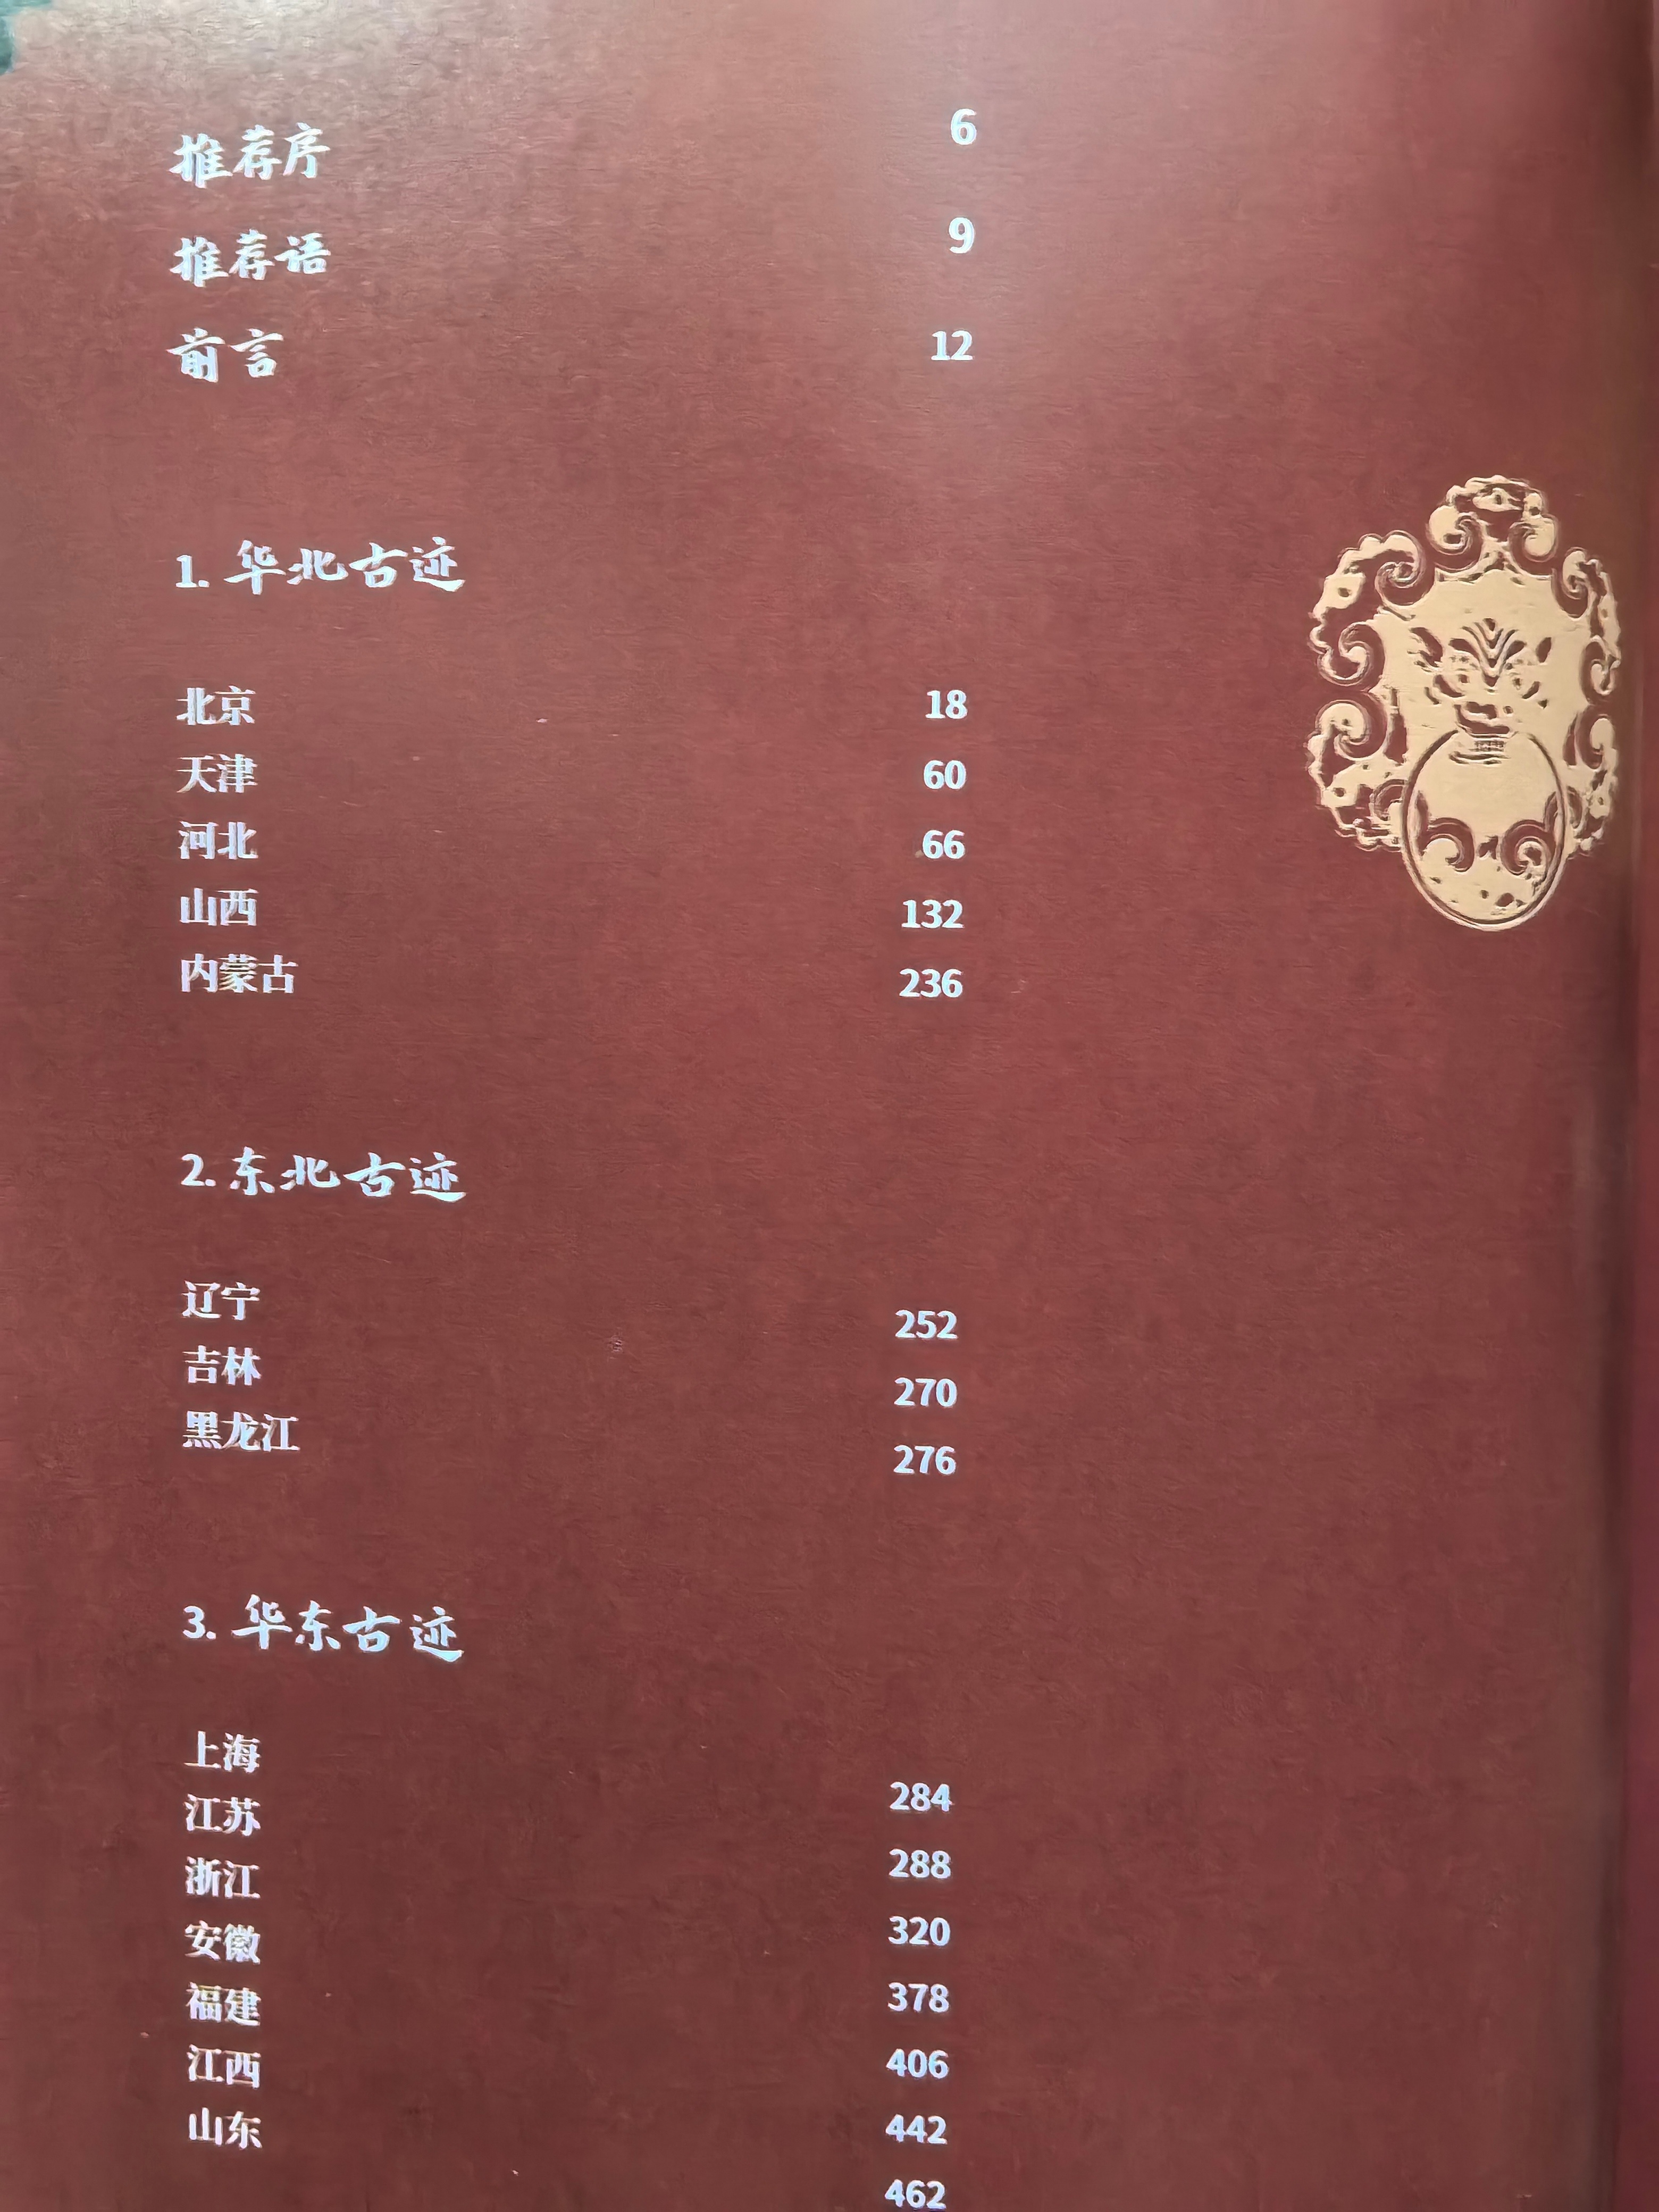 推荐序 6
推荐语 9
前言 12
1. 华北古迹
北京 18
天津 60
河北 66
山西 132
内蒙古 236
2. 东北古迹
辽宁 252
吉林 270
黑龙江 276
3. 华东古迹
上海 284
江苏 288
浙江 320
安徽 378
福建 406
江西 442
山东 462